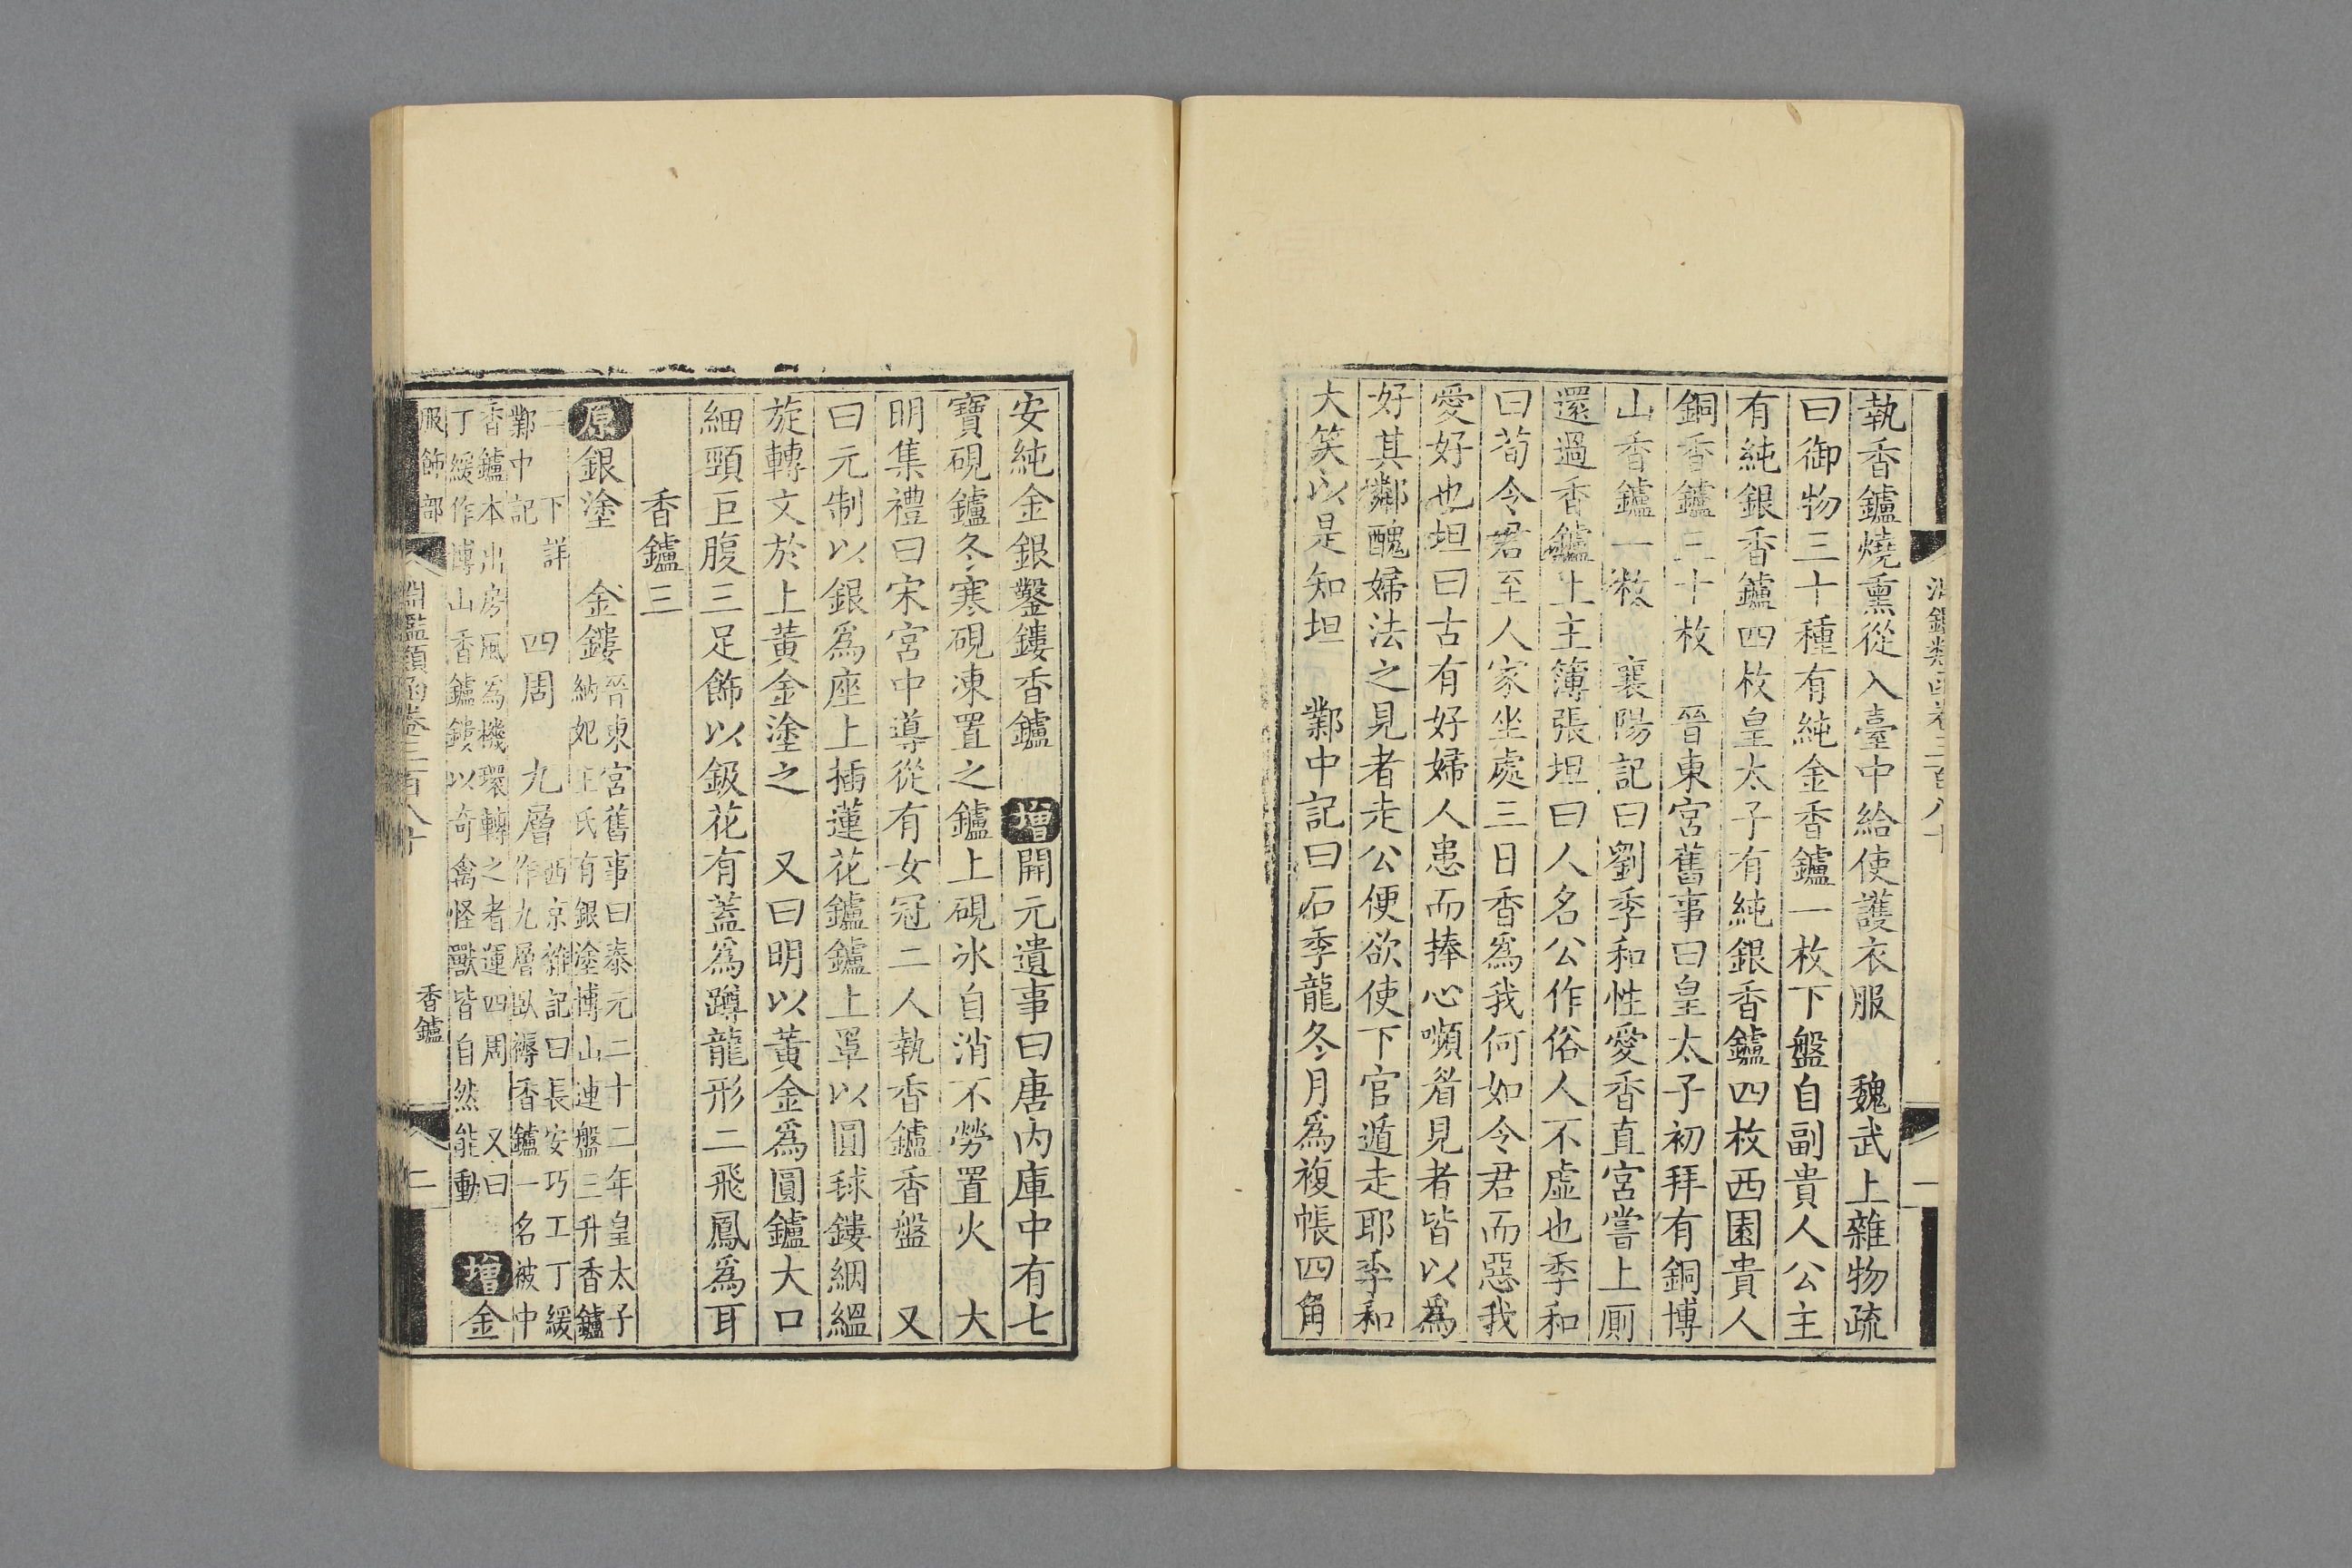 執香鑪燒熏從入臺中給使護衣服　魏武上雜物疏
曰御物三十種有純金香鑪一枚下盤自副貴人公主
有純銀香鑪四枚皇太子有純銀香鑪四枚西園貴人
銅香鑪三十枚　晉東宮舊事曰皇太子初拜有銅博
山香鑪一枚　襄陽記曰劉季和性愛香直宮嘗上厠
還過香鑪上主簿張坦曰人名公作俗人不虛也季和
曰荀令君至人家坐處三日香爲我何如令君而惡我
愛好也坦曰古有好婦人患而捧心嚬眉見者皆以爲
好其鄰醜婦法之見者走公便欲使下官遁走耶季和
大笑以是知坦　鄴中記曰石季龍冬月爲複帳四角
安純金銀鑿鏤香鑪　增開元遺事曰唐内庫中有七
寶硯鑪冬寒硯凍置之鑪上硯冰自消不勞置火　大
明集禮曰宋宮中導從有女冠二人執香鑪香盤　又
曰元制以銀爲座上插蓮花鑪鑪上罩以圓毬鏤絪縕
旋轉文於上黃金塗之　又曰明以黃金爲圓鑪大口
細頸巨腹三足飾以鈒花有蓋爲蹲龍形二飛鳳爲耳
香鑪三
原銀塗　金鏤晉東宮舊事曰泰元二十二年皇太子納妃王氏有銀塗博山連盤三升香鑪
二　下詳鄴中記　四周　九層西京雜記曰長安巧工丁緩作九層臥褥香鑪一名被中
香鑪本出房風爲機環轉之者運四周　又曰丁緩作博山香鑪鏤以奇禽怪獸皆自然能動　增金
服飾部　淵鑑類函卷三百八十　香鑪　二